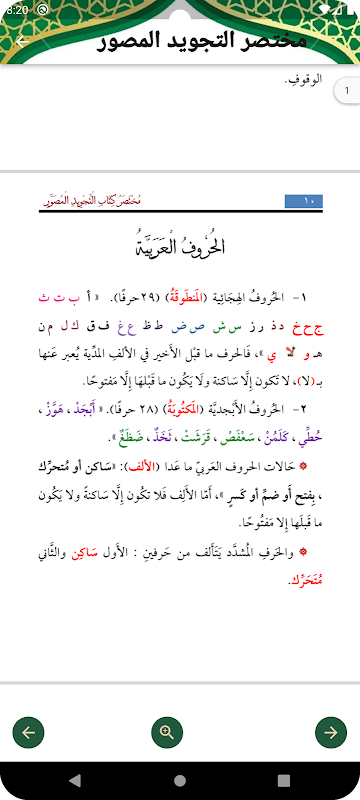 8:20
مختصر التجويد المصور
الوقوفِ.
1
مُختَصَرُ كِتَابِ التَّجوِيدِ الْمُصَوَّرِ
١٠
الحُرُوفُ الْعَرَبِيَّةُ
١- الحُروفُ الهِجَائِية (المَنطوقَةُ) (٢٩حرفًا). « أ ب ت ث
ج ح خ د ذ ر ز س ش ص ض ط ظ ع غ ف ق ك ل م ن
هـ و لا ي »، فَالحرف ما قَبْل الأَخير في الأَلفِ المدِّية يُعبر عَنها
بـ(لا)، لا تَكون إلَّا سَاكنة ولَا يَكُون ما قَبْلَها إلَّا مَفتوحًا.
٢- الحُروفُ الأَبْجديَّة (المَكتُوبَةُ) (٢٨ حرفًا). « أَبْجَدْ ، هَوَّزْ ،
حُطِّي، كَلَمُنْ، سَعْفَصْ ، قَرَشَتْ، ثَخَذٌ، ضَظَغٌ ».
حَالات الحروف العَربيّ ما عَدا (الألف): «سَاكن أو مُتحرِّك
، بِفتح أَو ضَمٍّ أَو كَسرٍ »، أَمَّا الأَلِف فَلا تكُون إلَّا سَاكنةً ولا يَكُون
ما قَبلَها إلا مَفتُوحًا.
والحَرفِ المُشدَّد يَتَألف من حَرفينِ : الأَول سَاكِن والثَّاني
مُتَحَرِّك.